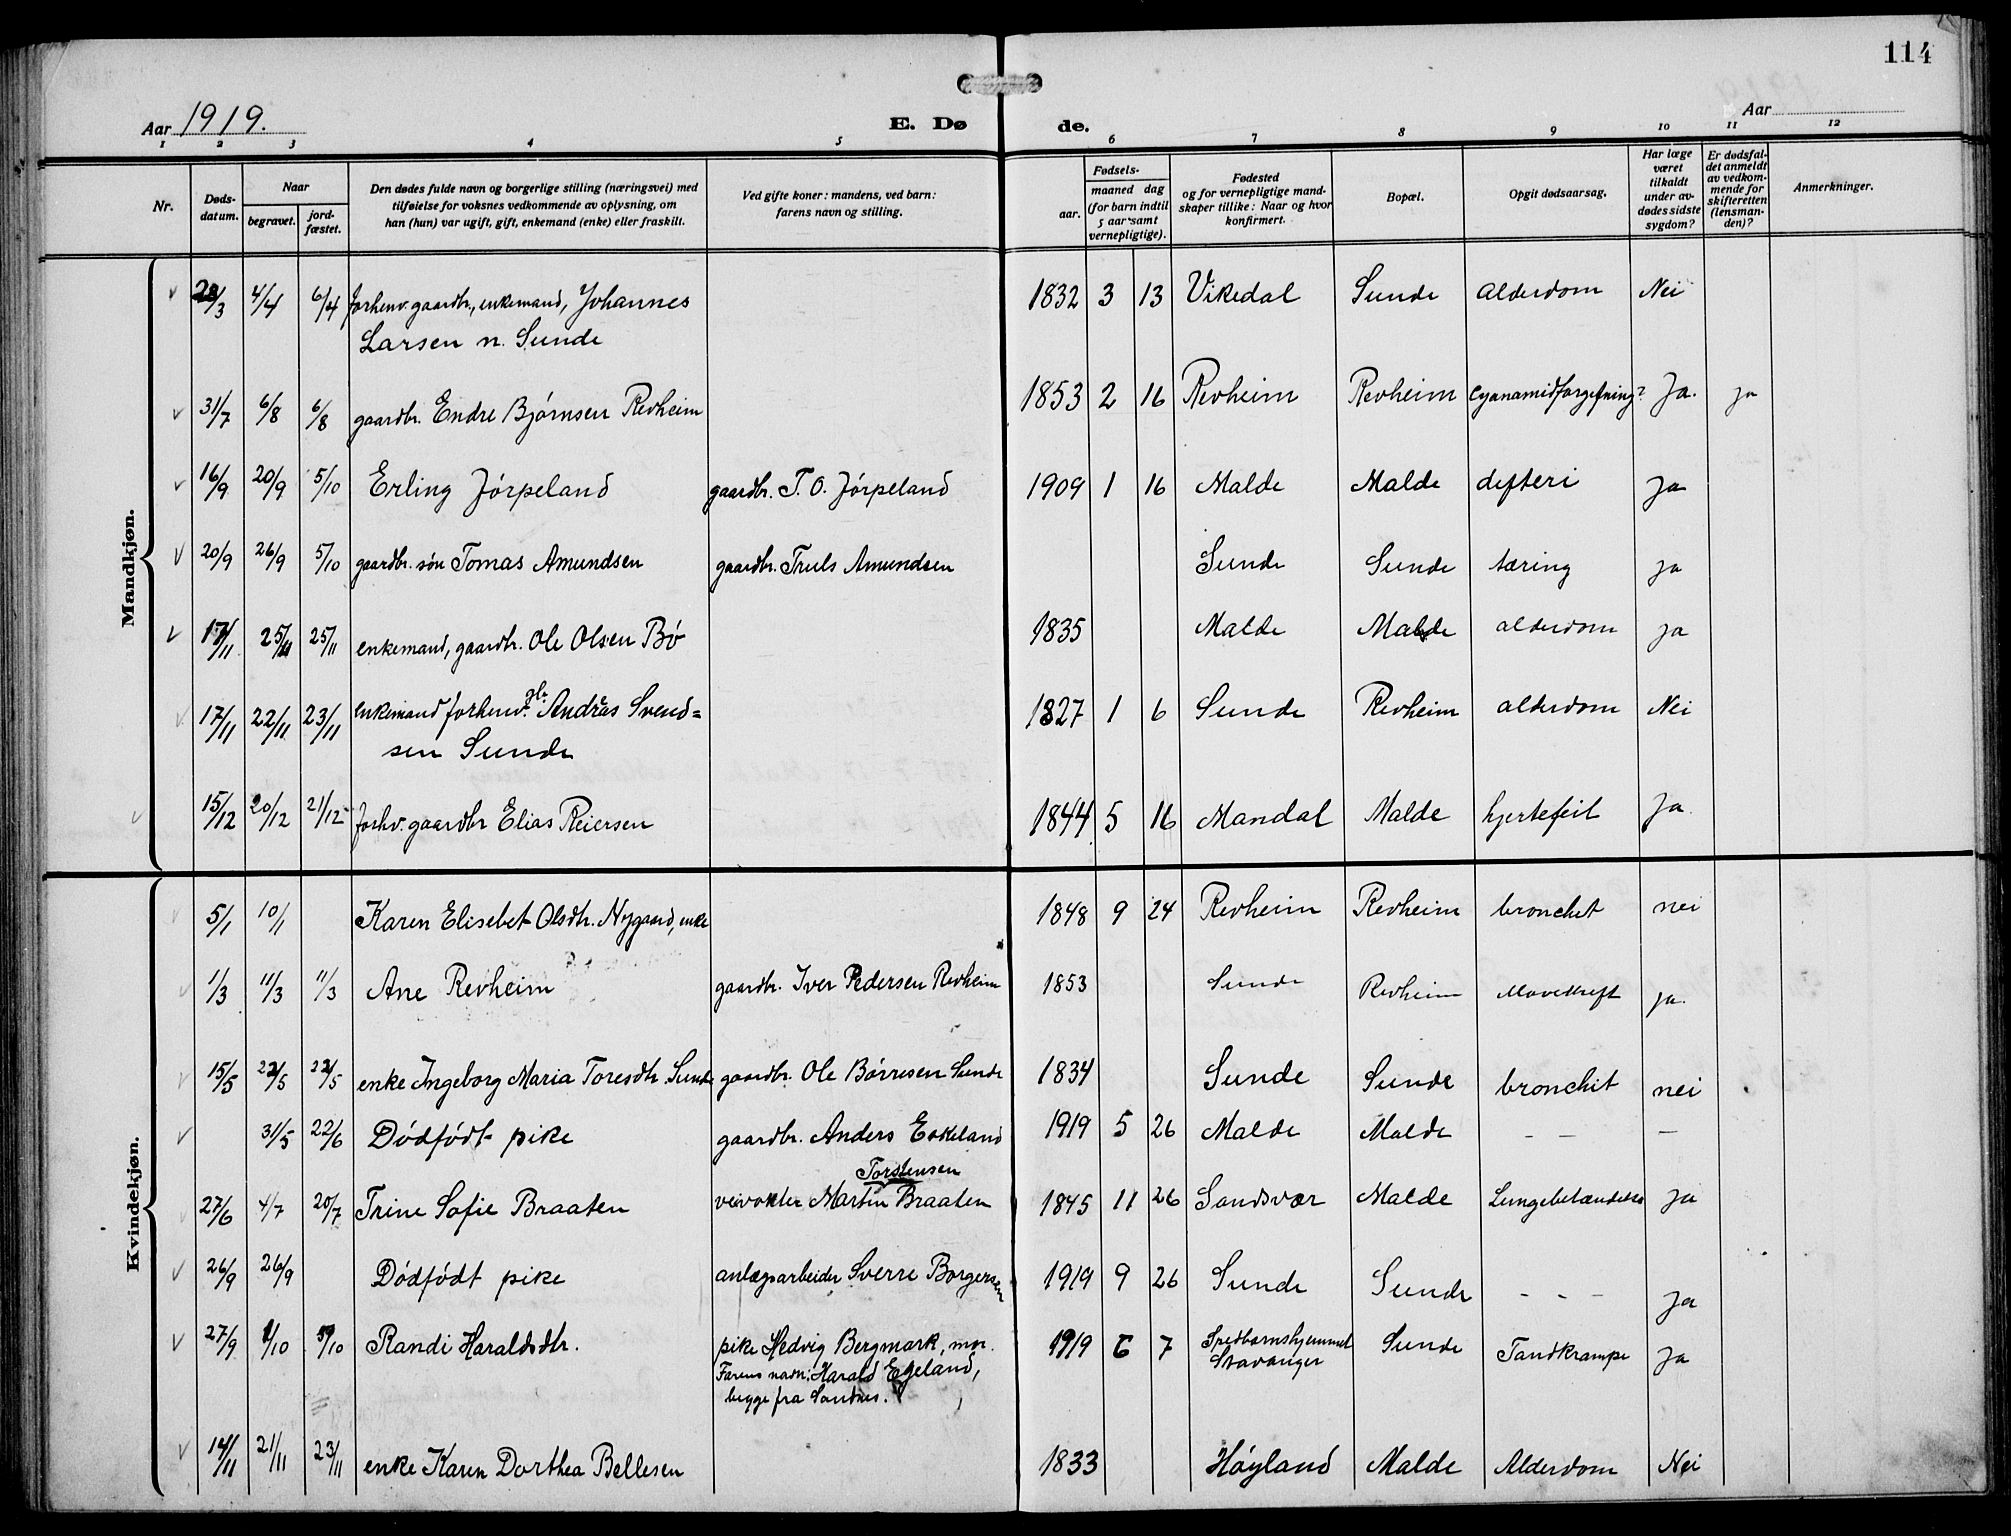 114
Aar 1919.
E. Dø de.
Aar
1 2 3 4 5 6 7 8 9 10 11 12
Nr.
Døds-
datum.
Naar
begravet.
jord-
fæstet.
Den dødes fulde navn og borgerlige stilling (næringsvei) med
tilføielse for voksnes vedkommende av oplysning, om
han (hun) var ugift, gift, enkemand (enke) eller fraskilt.
Ved gifte koner: mandens, ved barn:
farens navn og stilling.
Fødsels-
aar.
maaned dag
(for barn indtil
5 aar samt
vernepligtige).
Fødested
og for vernepligtige mand-
skaper tillike: Naar og hvor
konfirmert.
Bopæl.
Opgit dødsaarsag.
Har læge
været
tilkaldt
under av-
dødes sidste
sygdom?
Er dødsfal-
det anmeldt
av vedkom-
mende for
skifteretten
(lensman-
den)?
Anmerkninger.
Mandkjøn.
28/3 4/4 6/4 forhenv. gaardbr., enkemand, Johannes 1832 3 13 Vikedal Sunde alderdom Nei
Larsen n. Sunde
31/7 6/8 6/8 gaardbr. Endre Bjørnsen Revheim 1853 2 16 Revheim Revheim Cyanamidforgiftning? Ja. ja
16/9 20/9 5/10 Erling Jørpeland gaardbr. T. O. Jørpeland 1909 1 16 Malde Malde difteri Ja
20/9 26/9 5/10 gaardbr. søn Tomas Amundsen gaardbr. Truls Amundsen Sunde Sunde tæring ja
17/11 25/11 25/11 enkemand, gaardbr. Ole Olsen Bø 1835 Malde Malde alderdom ja
17/11 22/11 23/11 enkemand forhenv. gbr. Andreas Svend= 1827 1 6 Sunde Revheim alderdom Nei
sen Sunde
15/12 20/12 21/12 forhv. gaardbr Elias Reiersen 1844 5 16 Mandal Malde hjertefeil Ja.
Kvindekjøn.
5/1 10/1 Karen Elisebet Olsdtr. Nygaard, enke 1848 9 24 Revheim Revheim bronchit nei
1/3 11/3 11/3 Ane Revheim gaardbr. Iver Pedersen Revheim 1853 Sunde Revheim Mavekreft ja.
15/5 22/5 22/5 enke Ingeborg Maria Toresdtr. Sunde gaardbr. Ole Børresen Sunde 1834 Sunde Sunde bronchit nei
31/5 22/6 Dødfødt pike gaardbr. Anders Eskeland 1919 5 26 Malde Malde - - -
Torstensen
27/6 4/7 20/7 Trine Sofie Braaten veivokter Martin Braaten 1845 11 26 Sandsvær Malde Lungebetændelse Ja
26/9 26/9 Dødfødt pike anlægsarbeider Sverre Borgersen 1919 9 26 Sunde Sunde - - - Ja
27/9 1/10 5/10 Randi Haraldsdtr. pike Hedvig Bergmark, mor. 1919 6 7 Spedbarnshjemmet Sunde Tandkrampe Ja
Farens navn: Harald Egeland, Stavanger
begge fra Sandnes.
14/11 21/11 23/11 enke Karen Dorthea Bellesen 1833 Høyland Malde Alderdom Nei